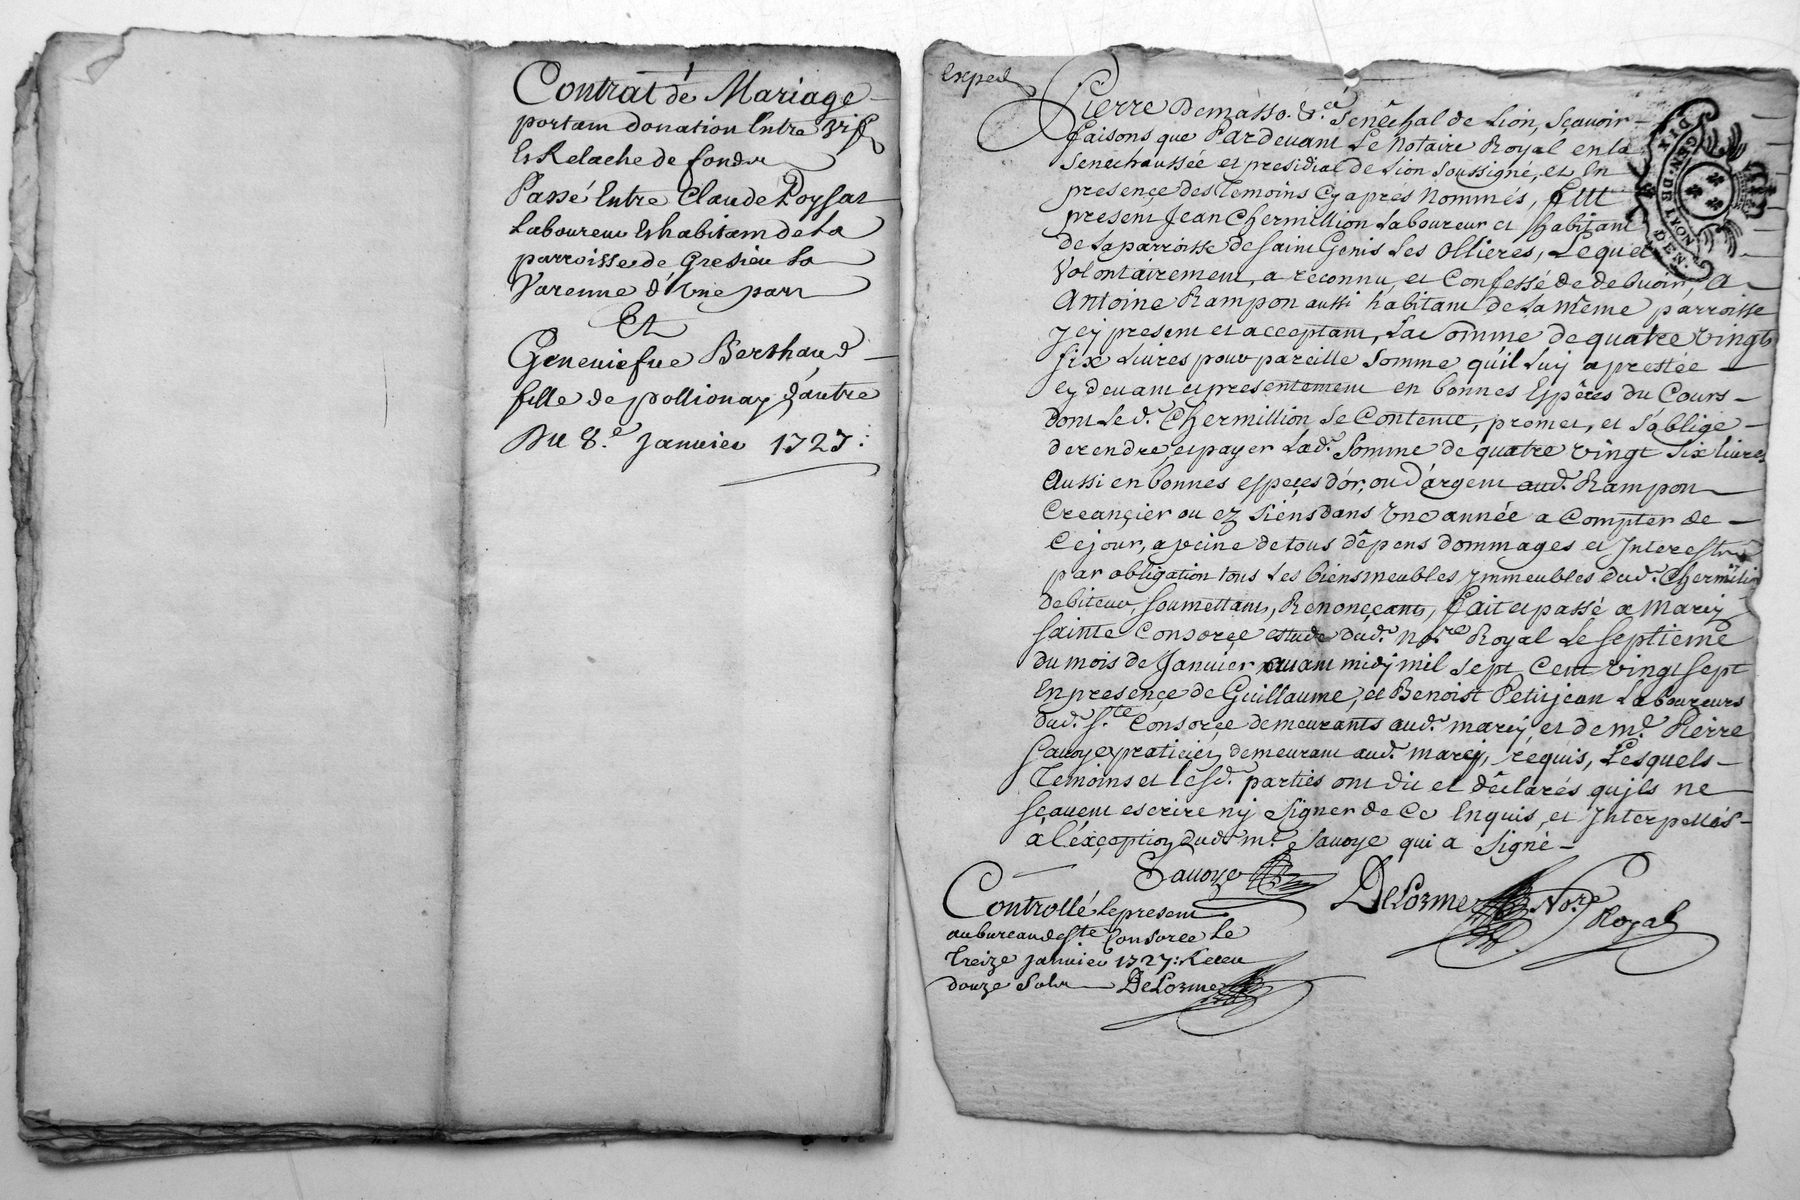 Contrat de Mariage
portam donation Entre vifs
Et Relache de fonds
Passé Entre Claude Poyfat
Laboureur Et habitam de La
parroisse de Gresieu La
Varenne d'Une part
Et
Geneuiefue Berthaud
fille de pollionay d'autre
Du 8.e Januier 1727:
Exped
Pierre Demasso &.ca Senêchal de Lion, Sçauoir
faisons que Pardeuant Le Notaire Royal en la
Senêchaussée et presidial de Lion Soussigné, et En
presençe des Temoins Cy apres Nommés, fut
present Jean Chermillion Laboureur et habitant
de La parroisse de Saint Genis Les Ollieres, Lequel
Volontairement, a reconnu, et Confessé de debuoir, A
Antoine Rampon aussi habitant de La même parroisse
Jcy present et acceptant, La Somme de quatre vingts
six Liures pour pareille Somme qu'il Luy a prestée
cy deuant et presentement en bonnes Espêces du Cours
dont Le d.t Chermillion Se Contente, promet, et s'oblige
de rendre, et payer Lad.e Somme de quatre vingt six liures
Aussi en bonnes espeçes d'or, ou d'argent aud.t Rampon
Creançier ou ez siens dans Une année a Compter de
Ce jour, a peine de tous dêpens dommages et Interests
par obligation tous Les biens meubles Jmmeubles dud.t Chermillion
debiteur, Soumettant, Renonçant, fait et passé a Marcy
Sainte Consorçe estude dud.t No.re Royal Le septieme
du mois de Januier auant midy mil sept Cent vingt sept
En presençe de Guillaume, et Benoist Petitjean Laboureurs
dud.t S.te Consorçe demeurants aud.t marcy, et de m.e Pierre
Sauoye praticien demeurant aud.t marcy, requis, Lesquels
Temoins et lesd.t parties ont dit et dêclarés qu'ils ne
sçauent escrire ny Signer de Ce Enquis, et Interpellés
à l'éxçeption dud.t m.e Sauoye qui a Signé
Sauoye
DeLorme No.re Royal
Controllé le present
au bureau de S.te Consorce Le
Treize januier 1727: Receu
douze Sols DeLorme
GEN. DE LYON
DIX DEN.